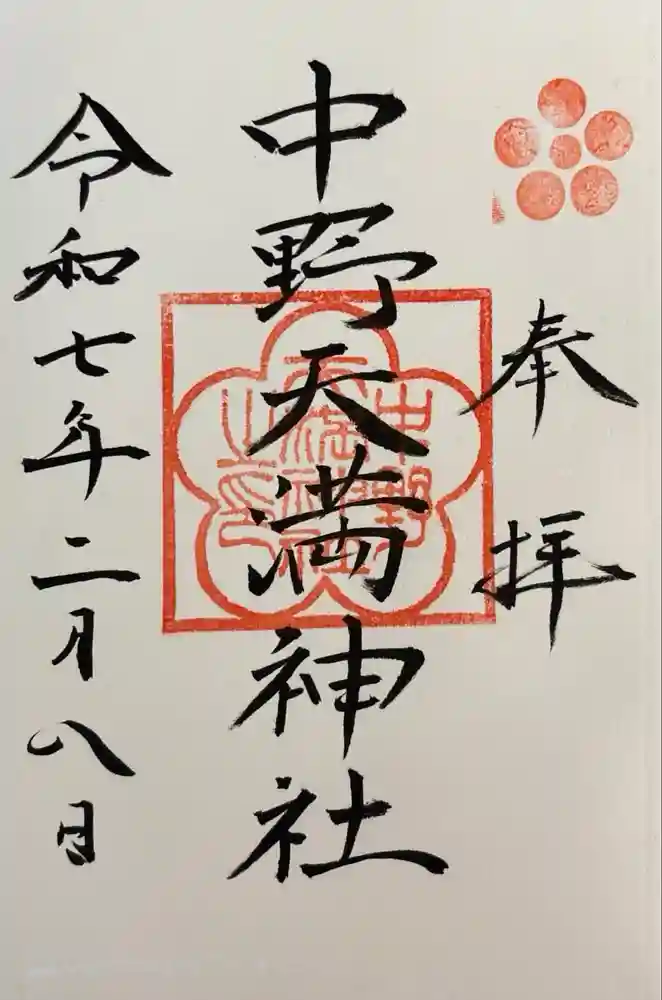 奉拝
中野天満神社
中野
天満神社
之印
令和七年二月八日